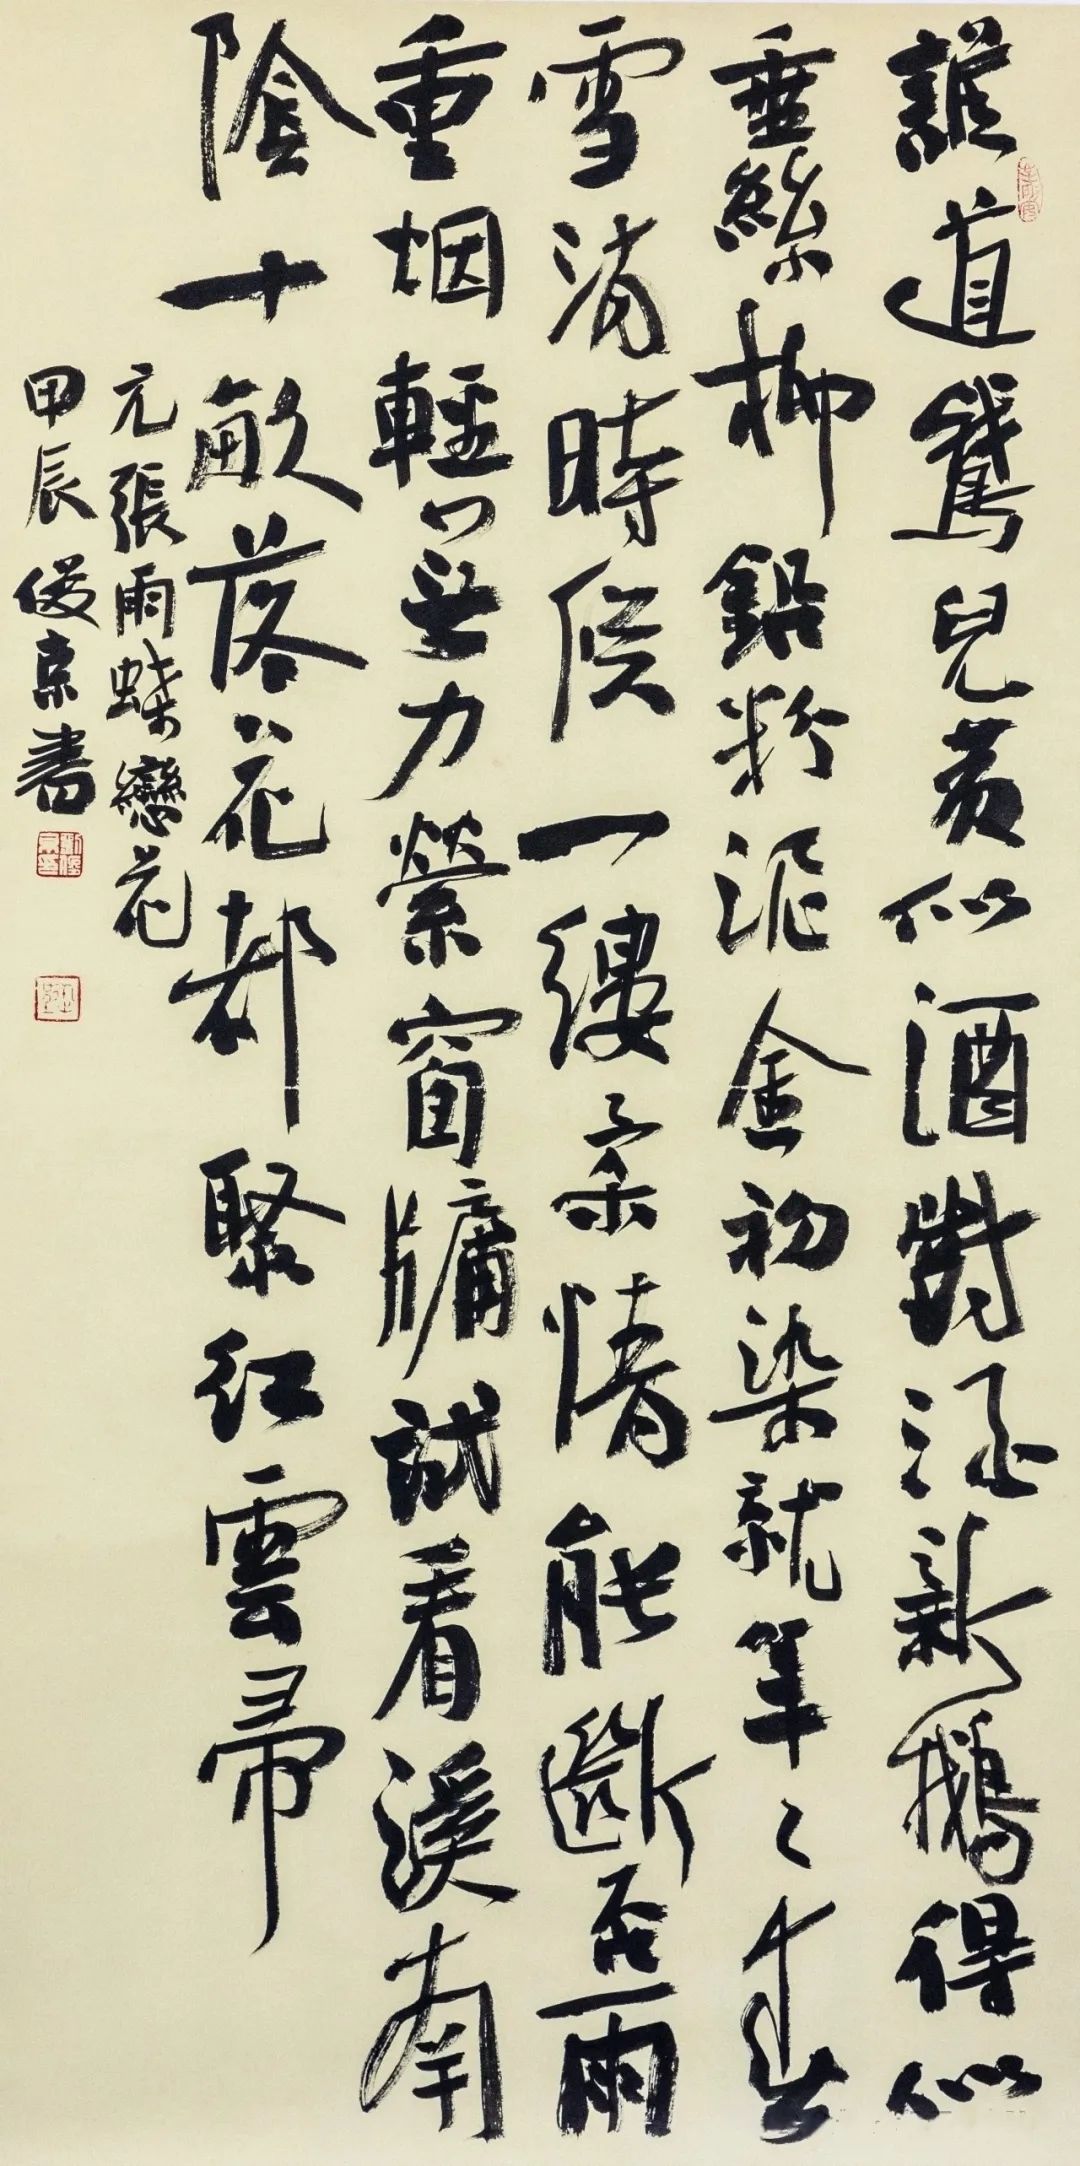 誰道鵞兒黃似酒對酒新鵝得似
垂絲柳鉛粉泥金初染就年〻春
雪消時候一縷柔情能斷否雨
重烟輕無力縈窗牖試看溪南
陰十畝落花都聚紅雲帚
元張雨蝶戀花
甲辰俊京書